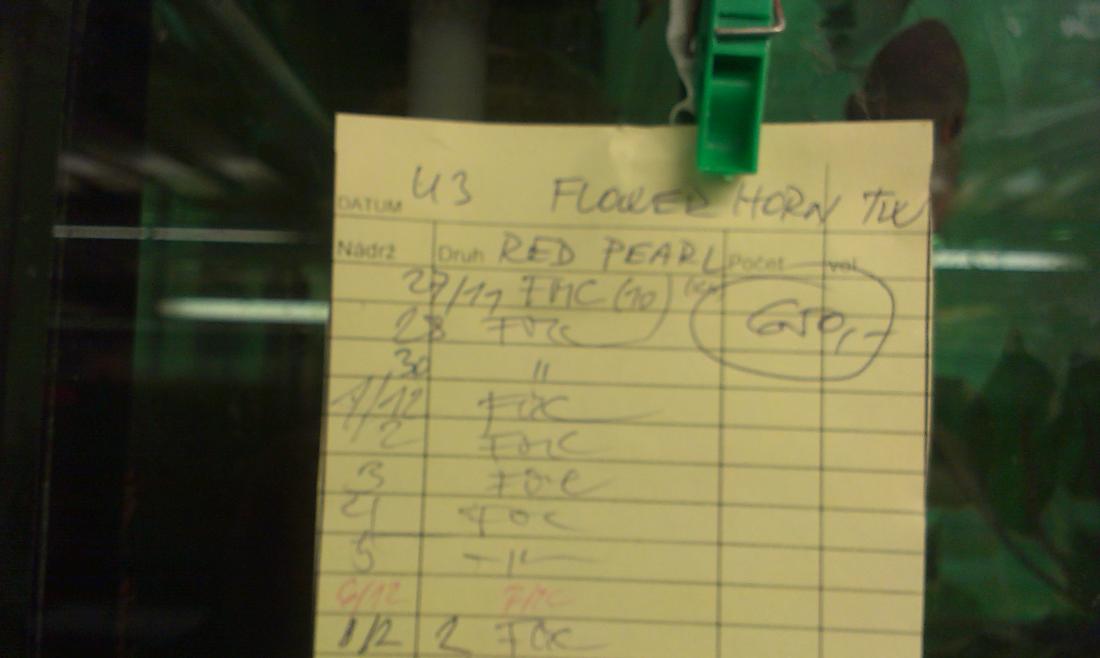 DATUM U3 FLOWER HORN
Nádrž Druh RED PEARL Počet vel
27/11 FMC (10) 650,-
28 FMC
30 "
1/12 FMC
2 FMC
3 FMC
4 FMC
5 -"-
6/12 FMC
1/2 2 FMC